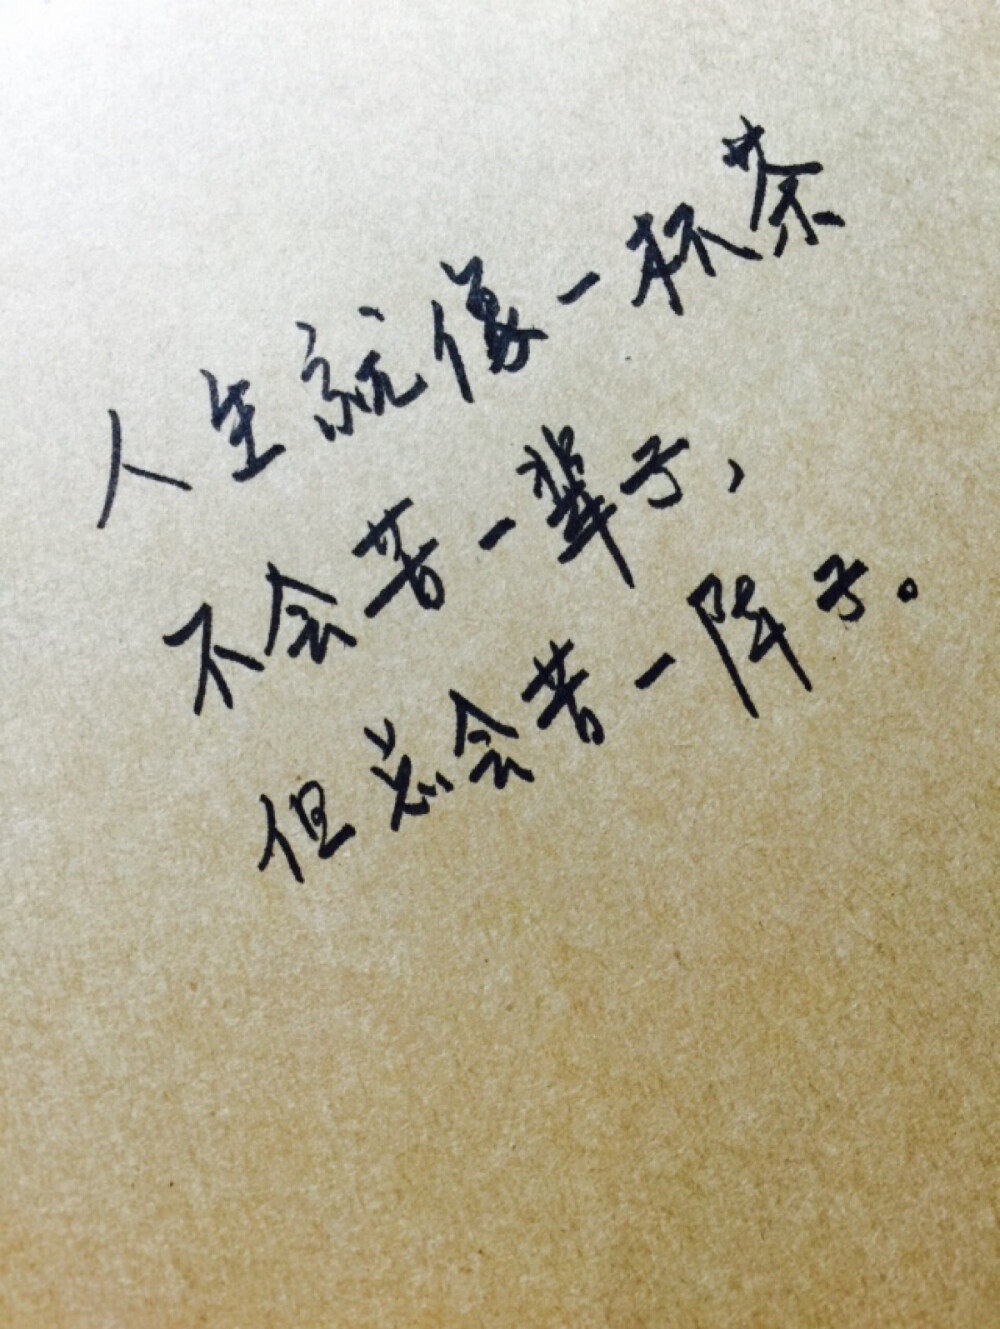 人生就像一杯茶
不会苦一辈子,
但总会苦一阵子。